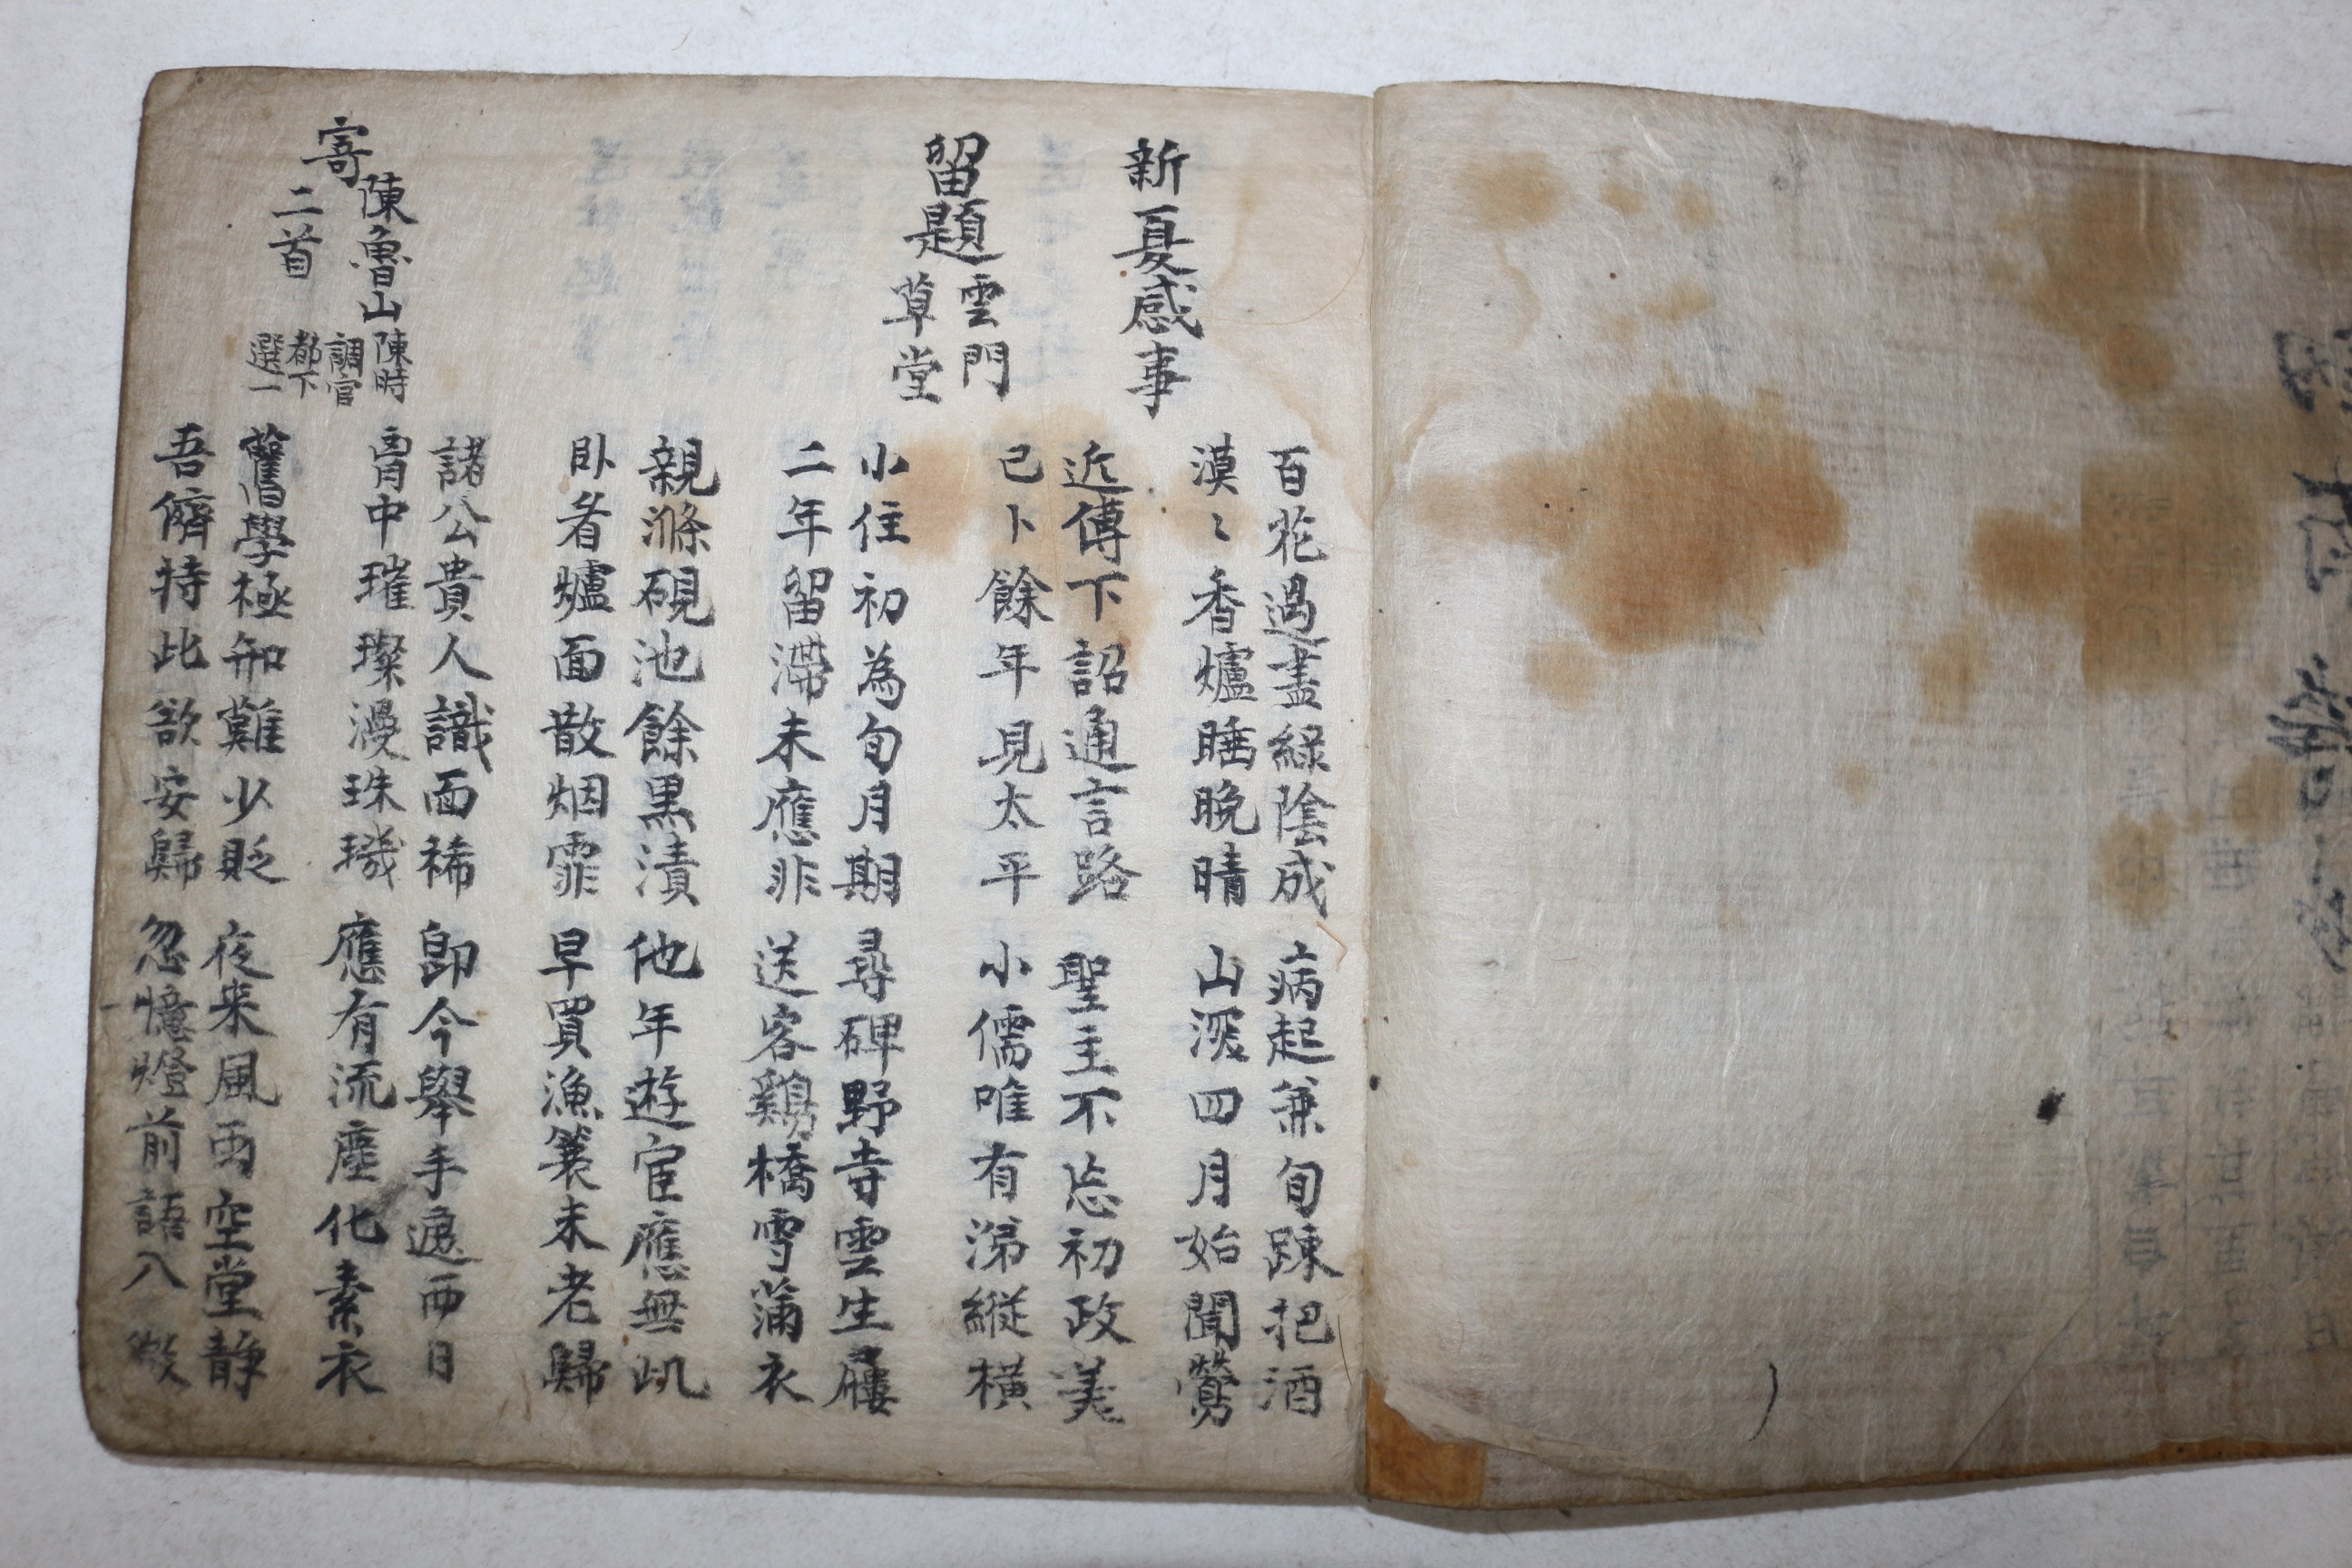 新夏感事
百花過盡綠陰成
漠〻香爐睡晚晴
病起兼旬踈把酒
山深四月始聞鶯
近傳下詔通言路
已卜餘年見太平
聖主不忘初政美
小儒唯有涕縱橫
留題雲門草堂
小住初為旬月期
二年留滯未應非
尋碑野寺雲生屨
送客鷄橋雪滿衣
親滌硯池餘黑漬
卧看爐面散烟霏
他年遊宦應無此
早買漁簑未老歸
寄陳魯山二首
陳時調官都下選一
諸公貴人識面稀
胷中璀璨漫珠璣
即今舉手遮西日
應有流塵化素衣
舊學極知難少貶
吾儕持此欲安歸
夜来風雨空堂静
忽憶燈前語入微